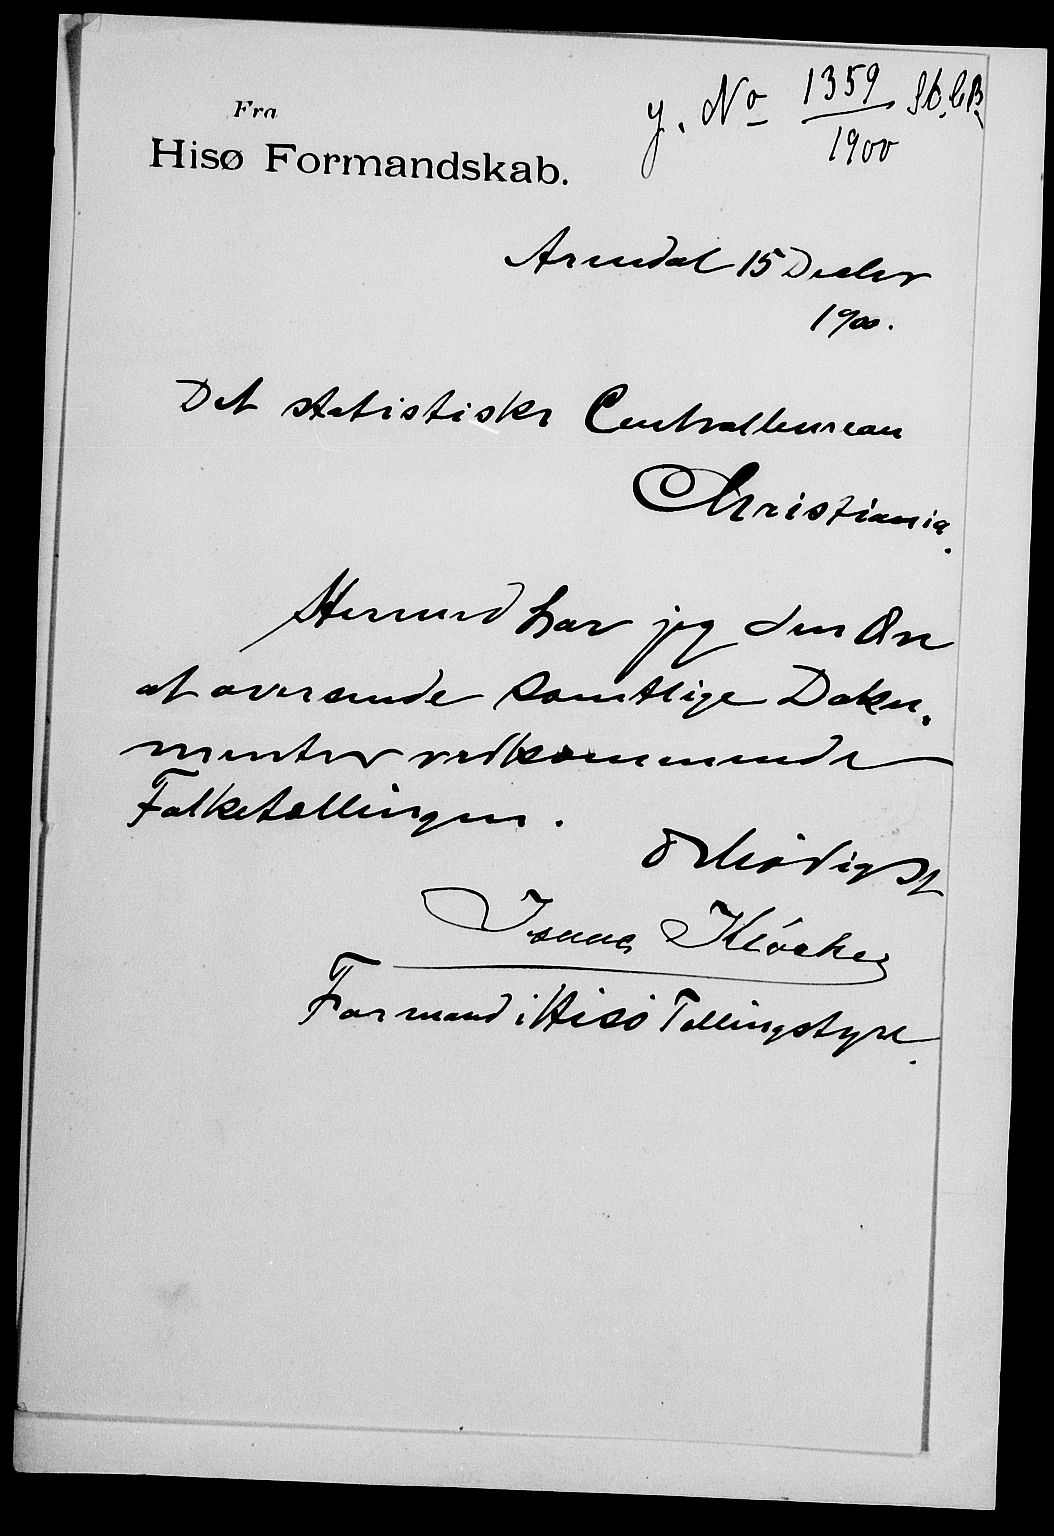 Fra
Hisø Formandskab.
J. No 1359 St. C.B.
1900
Arendal 15 Decbr
1900.
Det statistiske Centralbureau
Christiania.
Hermed har jeg den Ære
at oversende samtlige Doku-
menter vedkommende
Folketællingen.
Ærbødigst
Isaac Kløcker
Formand i Hisø Tællingstyre.